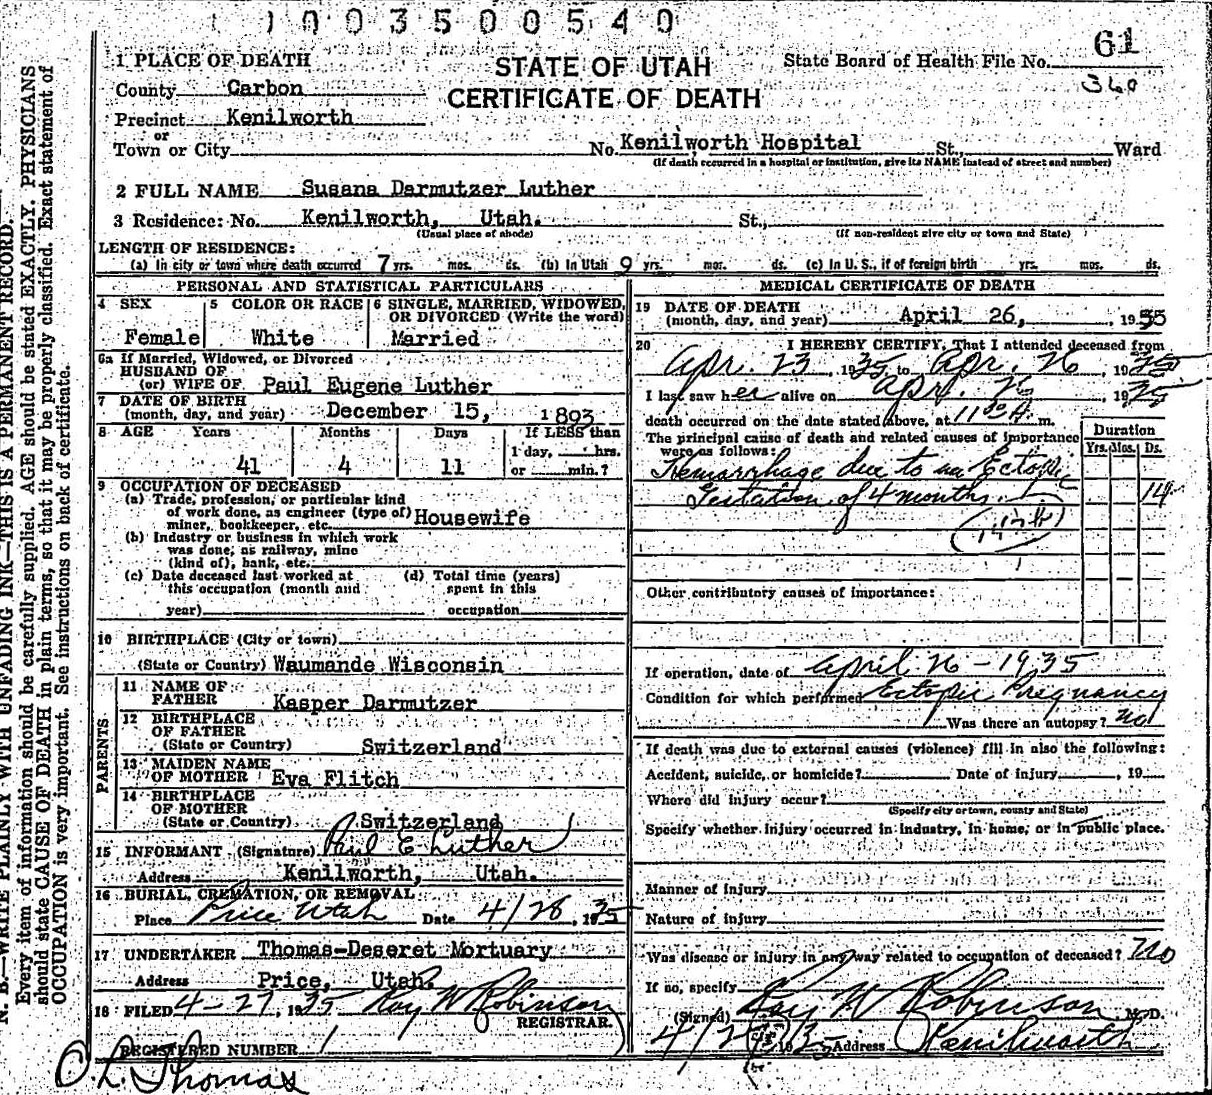 1003500540
61
State Board of Health File No.
360
STATE OF UTAH
CERTIFICATE OF DEATH
1 PLACE OF DEATH
County Carbon
Precinct Kenilworth
or
Town or City No. Kenilworth Hospital St., Ward
(If death occurred in a hospital or institution, give its NAME instead of street and number)
2 FULL NAME Susana Darmutzer Luther
3 Residence: No. Kenilworth, Utah. St.,
(Usual place of abode) (If non-resident give city or town and State)
LENGTH OF RESIDENCE:
(a) In city or town where death occurred 7 yrs. mos. ds. (b) In Utah 9 yrs. mos. ds. (c) In U. S., if of foreign birth yrs. mos. ds.
PERSONAL AND STATISTICAL PARTICULARS
4 SEX 5 COLOR OR RACE 6 SINGLE, MARRIED, WIDOWED, OR DIVORCED (Write the word)
Female White Married
6a If Married, Widowed, or Divorced
HUSBAND OF
(or) WIFE OF Paul Eugene Luther
7 DATE OF BIRTH
(month, day, and year) December 15, 1893
8 AGE Years Months Days If LESS than
1 day, hrs.
41 4 11 or min.?
9 OCCUPATION OF DECEASED
(a) Trade, profession, or particular kind
of work done, as engineer (type of)
miner, bookkeeper, etc. Housewife
(b) Industry or business in which work
was done, as railway, mine
(kind of), bank, etc.
(c) Date deceased last worked at (d) Total time (years)
this occupation (month and spent in this
year) occupation
10 BIRTHPLACE (City or town)
(State or Country) Waumande Wisconsin
PARENTS
11 NAME OF
FATHER Kasper Darmutzer
12 BIRTHPLACE
OF FATHER
(State or Country) Switzerland
13 MAIDEN NAME
OF MOTHER Eva Flitch
14 BIRTHPLACE
OF MOTHER
(State or Country) Switzerland
15 INFORMANT (Signature) Paul E Luther
Address Kenilworth, Utah.
16 BURIAL, CREMATION, OR REMOVAL
Place Price Utah Date 4/28, 1935
17 UNDERTAKER Thomas-Deseret Mortuary
Address Price, Utah.
18 FILED 4-27, 1935 Roy W Robinson
REGISTRAR.
REGISTERED NUMBER 1
O. L. Thomas
MEDICAL CERTIFICATE OF DEATH
19 DATE OF DEATH
(month, day, and year) April 26, 1935
20 I HEREBY CERTIFY, That I attended deceased from
Apr. 23, 1935, to Apr. 26, 1935
I last saw her alive on Apr. 26, 1935
death occurred on the date stated above, at 11 A m.
The principal cause of death and related causes of importance
were as follows:
Duration
Yrs. Mos. Ds.
Hemorrhage due to an Ectopic
Gestation of 4 months. 14
Other contributory causes of importance:
If operation, date of April 26-1935
Condition for which performed Ectopic Pregnancy
Was there an autopsy? No
If death was due to external causes (violence) fill in also the following:
Accident, suicide, or homicide? Date of injury , 19
Where did injury occur?
(Specify city or town, county and State)
Specify whether injury occurred in industry, in home, or in public place.
Manner of injury
Nature of injury
Was disease or injury in any way related to occupation of deceased? No
If no, specify
(Signed) Roy W Robinson M. D.
Address Kenilworth
N. B.—WRITE PLAINLY WITH UNFADING INK—THIS IS A PERMANENT RECORD.
Every item of information should be carefully supplied. AGE should be stated EXACTLY. PHYSICIANS
should state CAUSE OF DEATH in plain terms, so that it may be properly classified. Exact statement of
OCCUPATION is very important. See instructions on back of certificate.